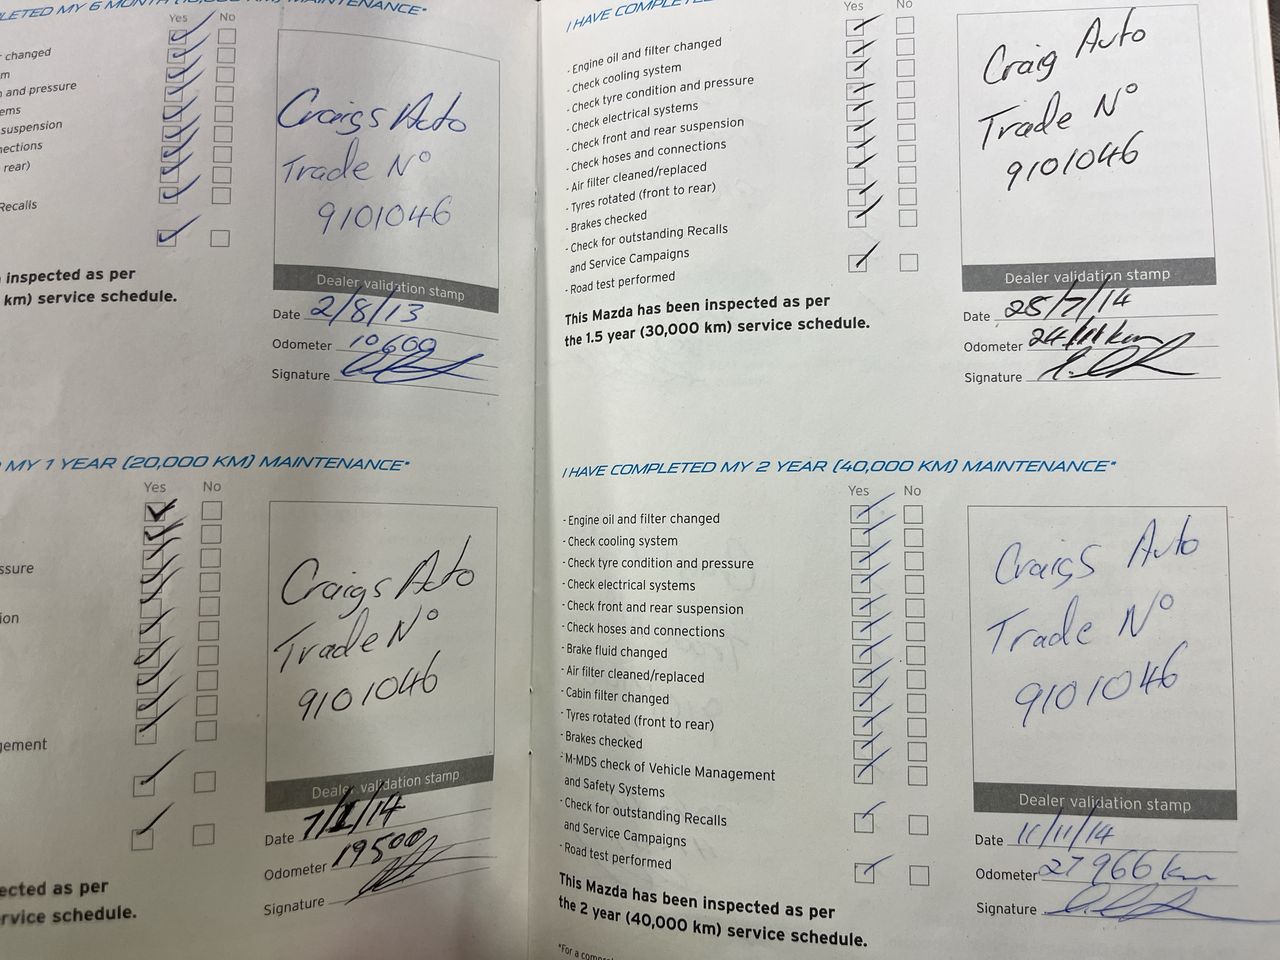 MY 6 MONTH
MAINTENANCE*
Yes No
changed
and pressure
ems
suspension
nections
rear)
Recalls
Craigs Auto
Trade N°
9101046
inspected as per
km) service schedule.
Dealer validation stamp
Date 2/8/13
Odometer 10600
Signature
MY 1 YEAR (20,000 KM) MAINTENANCE*
Yes No
ssure
ion
gement
Craigs Auto
Trade N°
9101046
Dealer validation stamp
Date 7/1/14
Odometer 19500
Signature
ected as per
rvice schedule.
I HAVE COMPLETED
Yes No
- Engine oil and filter changed
- Check cooling system
- Check tyre condition and pressure
- Check electrical systems
- Check front and rear suspension
- Check hoses and connections
- Air filter cleaned/replaced
- Tyres rotated (front to rear)
- Brakes checked
- Check for outstanding Recalls
and Service Campaigns
- Road test performed
This Mazda has been inspected as per
the 1.5 year (30,000 km) service schedule.
Craig Auto
Trade N°
9101046
Dealer validation stamp
Date 25/7/14
Odometer
Signature
I HAVE COMPLETED MY 2 YEAR (40,000 KM) MAINTENANCE*
Yes No
- Engine oil and filter changed
- Check cooling system
- Check tyre condition and pressure
- Check electrical systems
- Check front and rear suspension
- Check hoses and connections
- Brake fluid changed
- Air filter cleaned/replaced
- Cabin filter changed
- Tyres rotated (front to rear)
- Brakes checked
- M-MDS check of Vehicle Management
and Safety Systems
- Check for outstanding Recalls
and Service Campaigns
- Road test performed
This Mazda has been inspected as per
the 2 year (40,000 km) service schedule.
Craigs Auto
Trade N°
9101046
Dealer validation stamp
Date 11/11/14
Odometer 27966 km
Signature
*For a